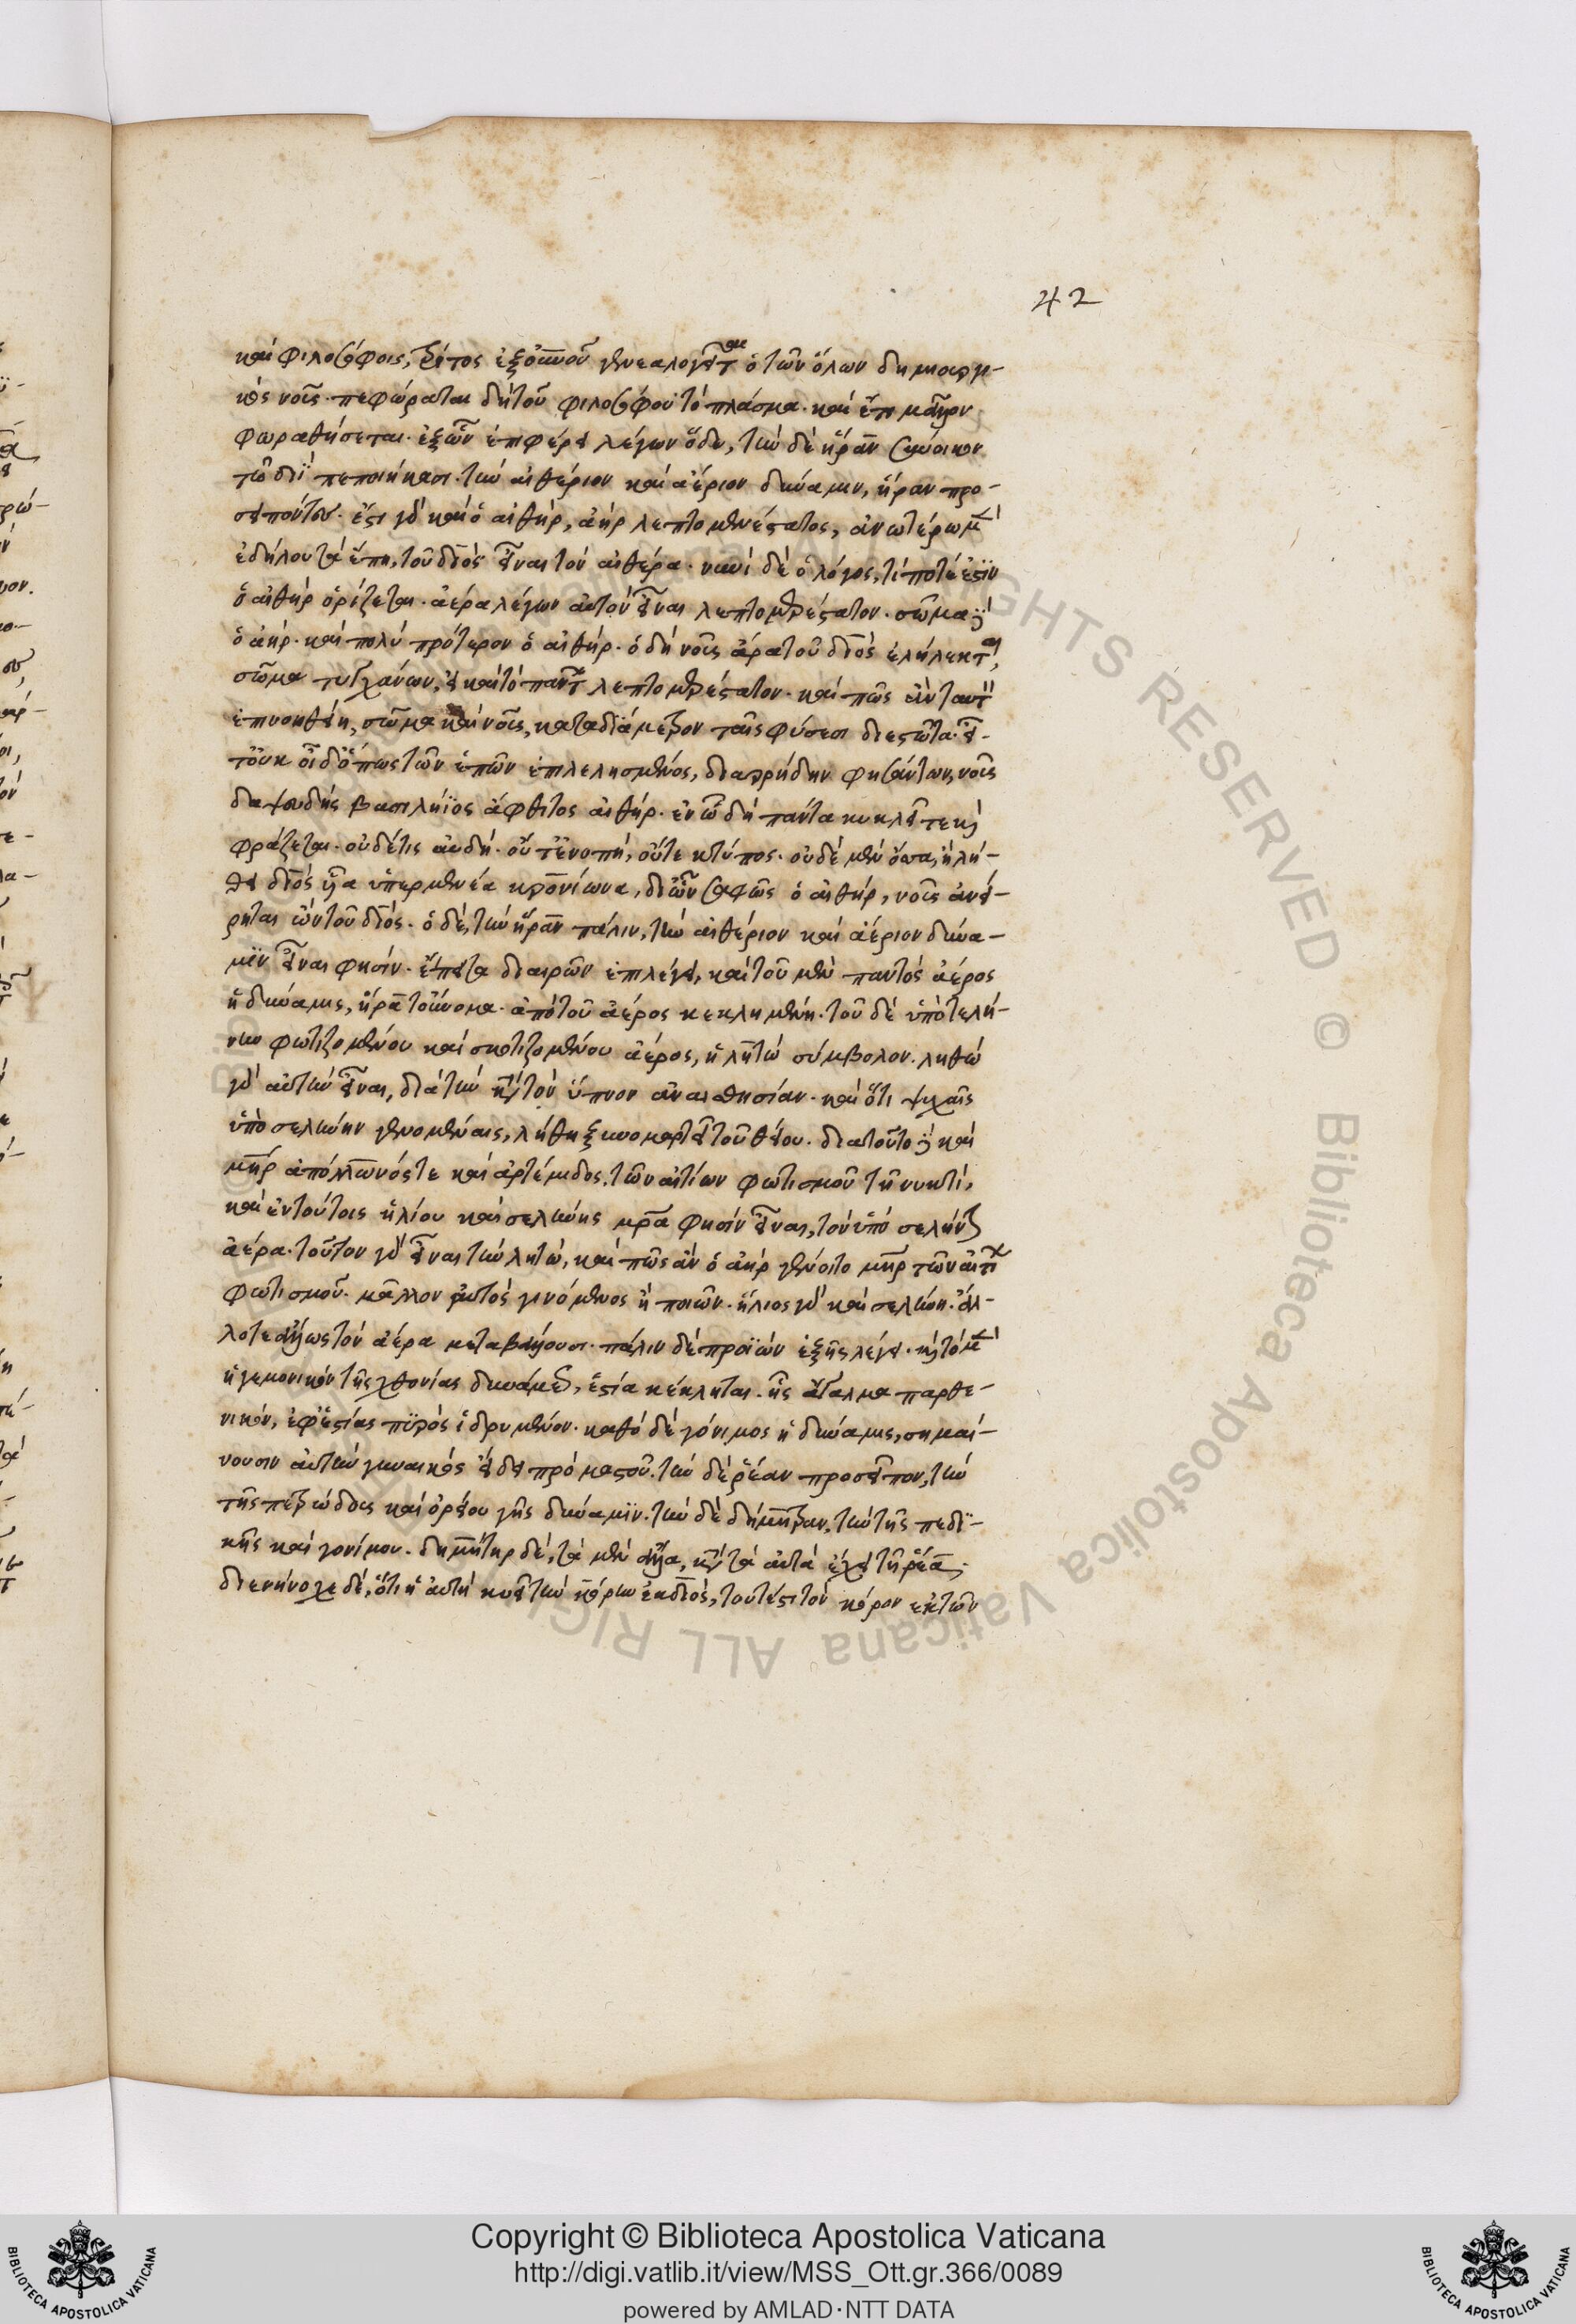 42
καὶ φιλοσόφοις, τρίτος ἐξ οὐνοῦ γενεαλογεῖται ὁ τῶν ὅλων δημιουργι-
κὸς νοῦς. πεφώραται δὴ τοῦ φιλοσόφου τὸ πλάσμα. καὶ ἔτι μᾶλλον
φωραθήσεται. ἐξ ὧν ἐπιφέρει λέγων ὧδε, τὴν δὲ ἥραν σύνοικον
τῷ διῒ πεποιήκασι. τὴν αἰθέριον καὶ ἀέριον δύναμιν, ἥραν προ-
σειπόντες. ἔστι γὰρ καὶ ὁ αἰθήρ, ἀὴρ λεπτομερέστατος, ἀνωτέρω μὲν
ἐδήλου τὰ ἔπη, τοῦ διὸς εἶναι τὸν αἰθέρα. νυνὶ δὲ ὁ λόγος, τί ποτέ ἐστϊν
ὁ αἰθὴρ ὁρίζεται. ἀέρα λέγων αὐτὸν εἶναι λεπτομερέστατον. σῶμα δὲ
ὁ ἀήρ. καὶ πολὺ πρότερον ὁ αἰθήρ. ὁ δὴ νοῦς ἄρα τοῦ διὸς ἐλήλεκται,
σῶμα τυγχάνων, εἰ καὶ τὸ πάντων λεπτομερέστατον. καὶ πῶς ἂν ταυτὸν
ἐπινοηθείη, σῶμα καὶ νοῦς, κατὰ διάμετρον ταῖς φύσεσι διεστῶτα. εἶ-
τ' οὐκ οἶδ' ὅπως τῶν ἐπῶν ἐπιλελησμένος, διαρρήδην φησάντων, νοῦς
δ' ἀψευδὴς βασιλήϊος ἄφθιτος αἰθήρ. ἐν ᾧ δὴ πάντα κυκλεῖται καὶ
φράζεται. οὐδέ τις αὐδή. οὔτ' ἐνοπή, οὔτε κτύπος. οὐδὲ μὲν ὄσσα, ἣ λή-
θει διὸς ὦτα ὑπερμενέα κρονίωνα, δι' ὧν σαφῶς ὁ αἰθήρ, νοῦς ἀνεί-
ρηται ὢν τοῦ διός. ὁ δὲ, τὴν ἥραν πάλιν, τὴν αἰθέριον καὶ ἀέριον δύνα-
μϊν εἶναι φησίν. ἔπειτα διαιρῶν ἐπιλέγει, καὶ τοῦ μὲν παντὸς ἀέρος
ἡ δύναμις, ἥρα τοὔνομα. ἀπὸ τοῦ ἀέρος κεκλημένη. τοῦ δὲ ὑπὸ σελή-
νην φωτιζομένου καὶ σκοτιζομένου ἀέρος, ἡ λητὼ σύμβολον. ληθὼ
γὰρ αὐτὴν εἶναι, διὰ τὴν κατὰ τὸν ὕπνον ἀναισθησίαν. καὶ ὅτι ψυχαῖς
ὑπὸ σελήνην γενομέναις, λήθη ξυνομαρτεῖ τοῦ θείου. διὰ τοῦτο δὲ καὶ
μῆρ ἀπόλλωνός τε καὶ ἀρτέμιδος, τῶν αἰτίων φωτισμοῦ τῇ νυκτί,
καὶ ἐν τούτοις ἡλίου καὶ σελήνης μρα φησὶν εἶναι, τὸν ὑπὸ σελήνην
ἀέρα. τοῦτον γὰρ εἶναι τὴν λητώ, καὶ πῶς ἂν ὁ ἀὴρ γένοιτο μῆρ τῶν αἰτίων
φωτισμοῦ. μᾶλλον αὐτὸς γινόμενος ἢ ποιῶν. ἥλιος γὰρ καὶ σελήνη. ἄλ-
λοτε ἄλλως τὸν ἀέρα μεταβάλλουσι. πάλιν δὲ προϊὼν ἑξῆς λέγει. καὶ τὸ μὲν
ἡγεμονικὸν τῆς χθονίας δυνάμεως, ἑστία κέκληται. ἧς ἄγαλμα παρθε-
νικόν, ἐφ' ἑστίας πϋρὸς ἱδρυμένον. καθὸ δὲ γόνιμος ἡ δύναμις, σημαί-
νουσιν αὐτὴν γυναικὸς εἴδει προμάστου. τὴν δὲ ῥέαν προσεῖπον, τὴν
τῆς πετρώδους καὶ ὀρείου γῆς δύναμϊν. τὴν δὲ δήμητραν, τὴν τῆς πεδϊ-
νῆς καὶ γονίμου. δημήτηρ δέ, τὰ μὲν ἄλλα, κατὰ τὰ αὐτὰ ἔχει τῇ ῥέᾳ,
διενήνοχε δέ, ὅτι ἡ αὐτὴ κυεῖ τὴν κόρην ἐκ διός, τουτέστι τὸν κόρον ἐκ τῶν
Copyright © Biblioteca Apostolica Vaticana
http://digi.vatlib.it/view/MSS_Ott.gr.366/0089
powered by AMLAD·NTT DATA